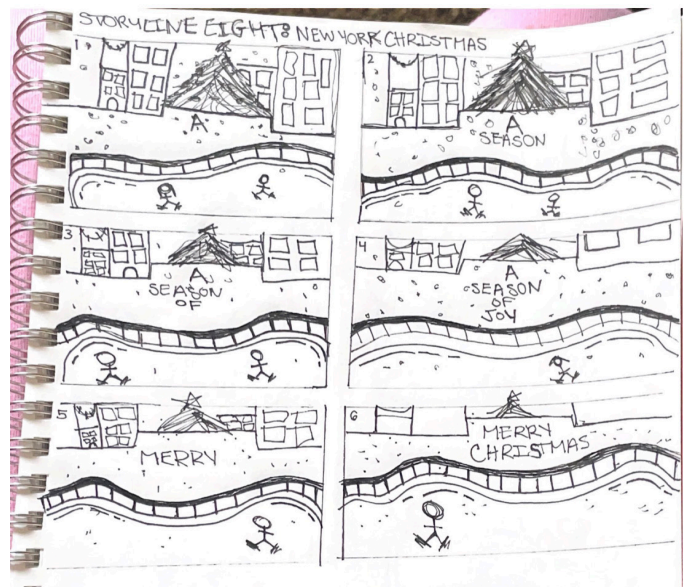 STORYLINE EIGHT: NEW YORK CHRISTMAS
1
A
2
A
SEASON
3
A
SEASON
OF
4
A
SEASON
OF
JOY
5
MERRY
6
MERRY
CHRISTMAS